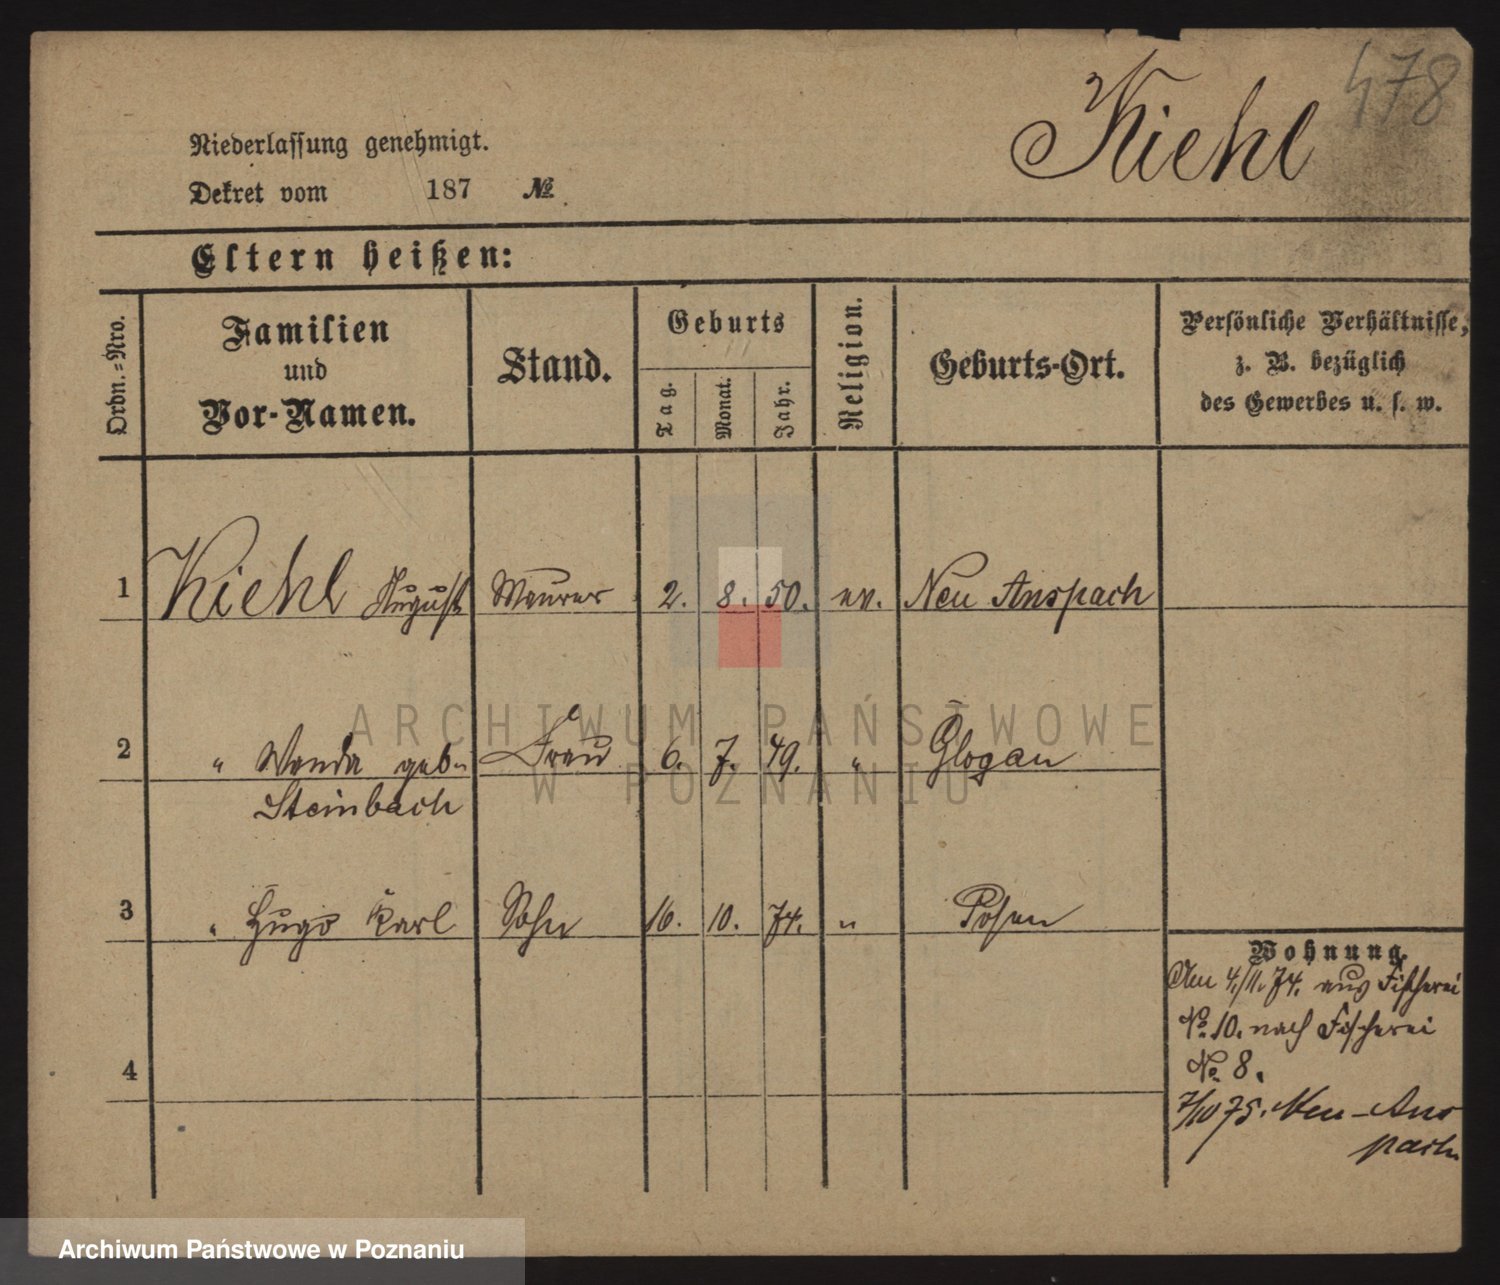 478
Kiehl
Niederlassung genehmigt.
Dekret vom 187 №
Eltern heißen:
Ordn.-Nro.
Familien
und
Vor-Namen.
Stand.
Geburts
Tag.
Monat.
Jahr.
Religion.
Geburts-Ort.
Persönliche Verhältnisse,
z. B. bezüglich
des Gewerbes u. s. w.
1 Kiehl August Maurer 2. 8. 50. ev. Neu Anspach
2 " Wanda geb. Frau 6. 7. 49. " Glogau
Steinbach
3 " Hugo Karl Sohn 16. 10. 74. " Posen
4
Wohnung.
Am 4./11. 74. aus Fischerei
No. 10. nach Fischerei
No. 8.
7/10 75. Neu-Ans
pach
ARCHIWUM PAŃSTWOWE
W POZNANIU
Archiwum Państwowe w Poznaniu